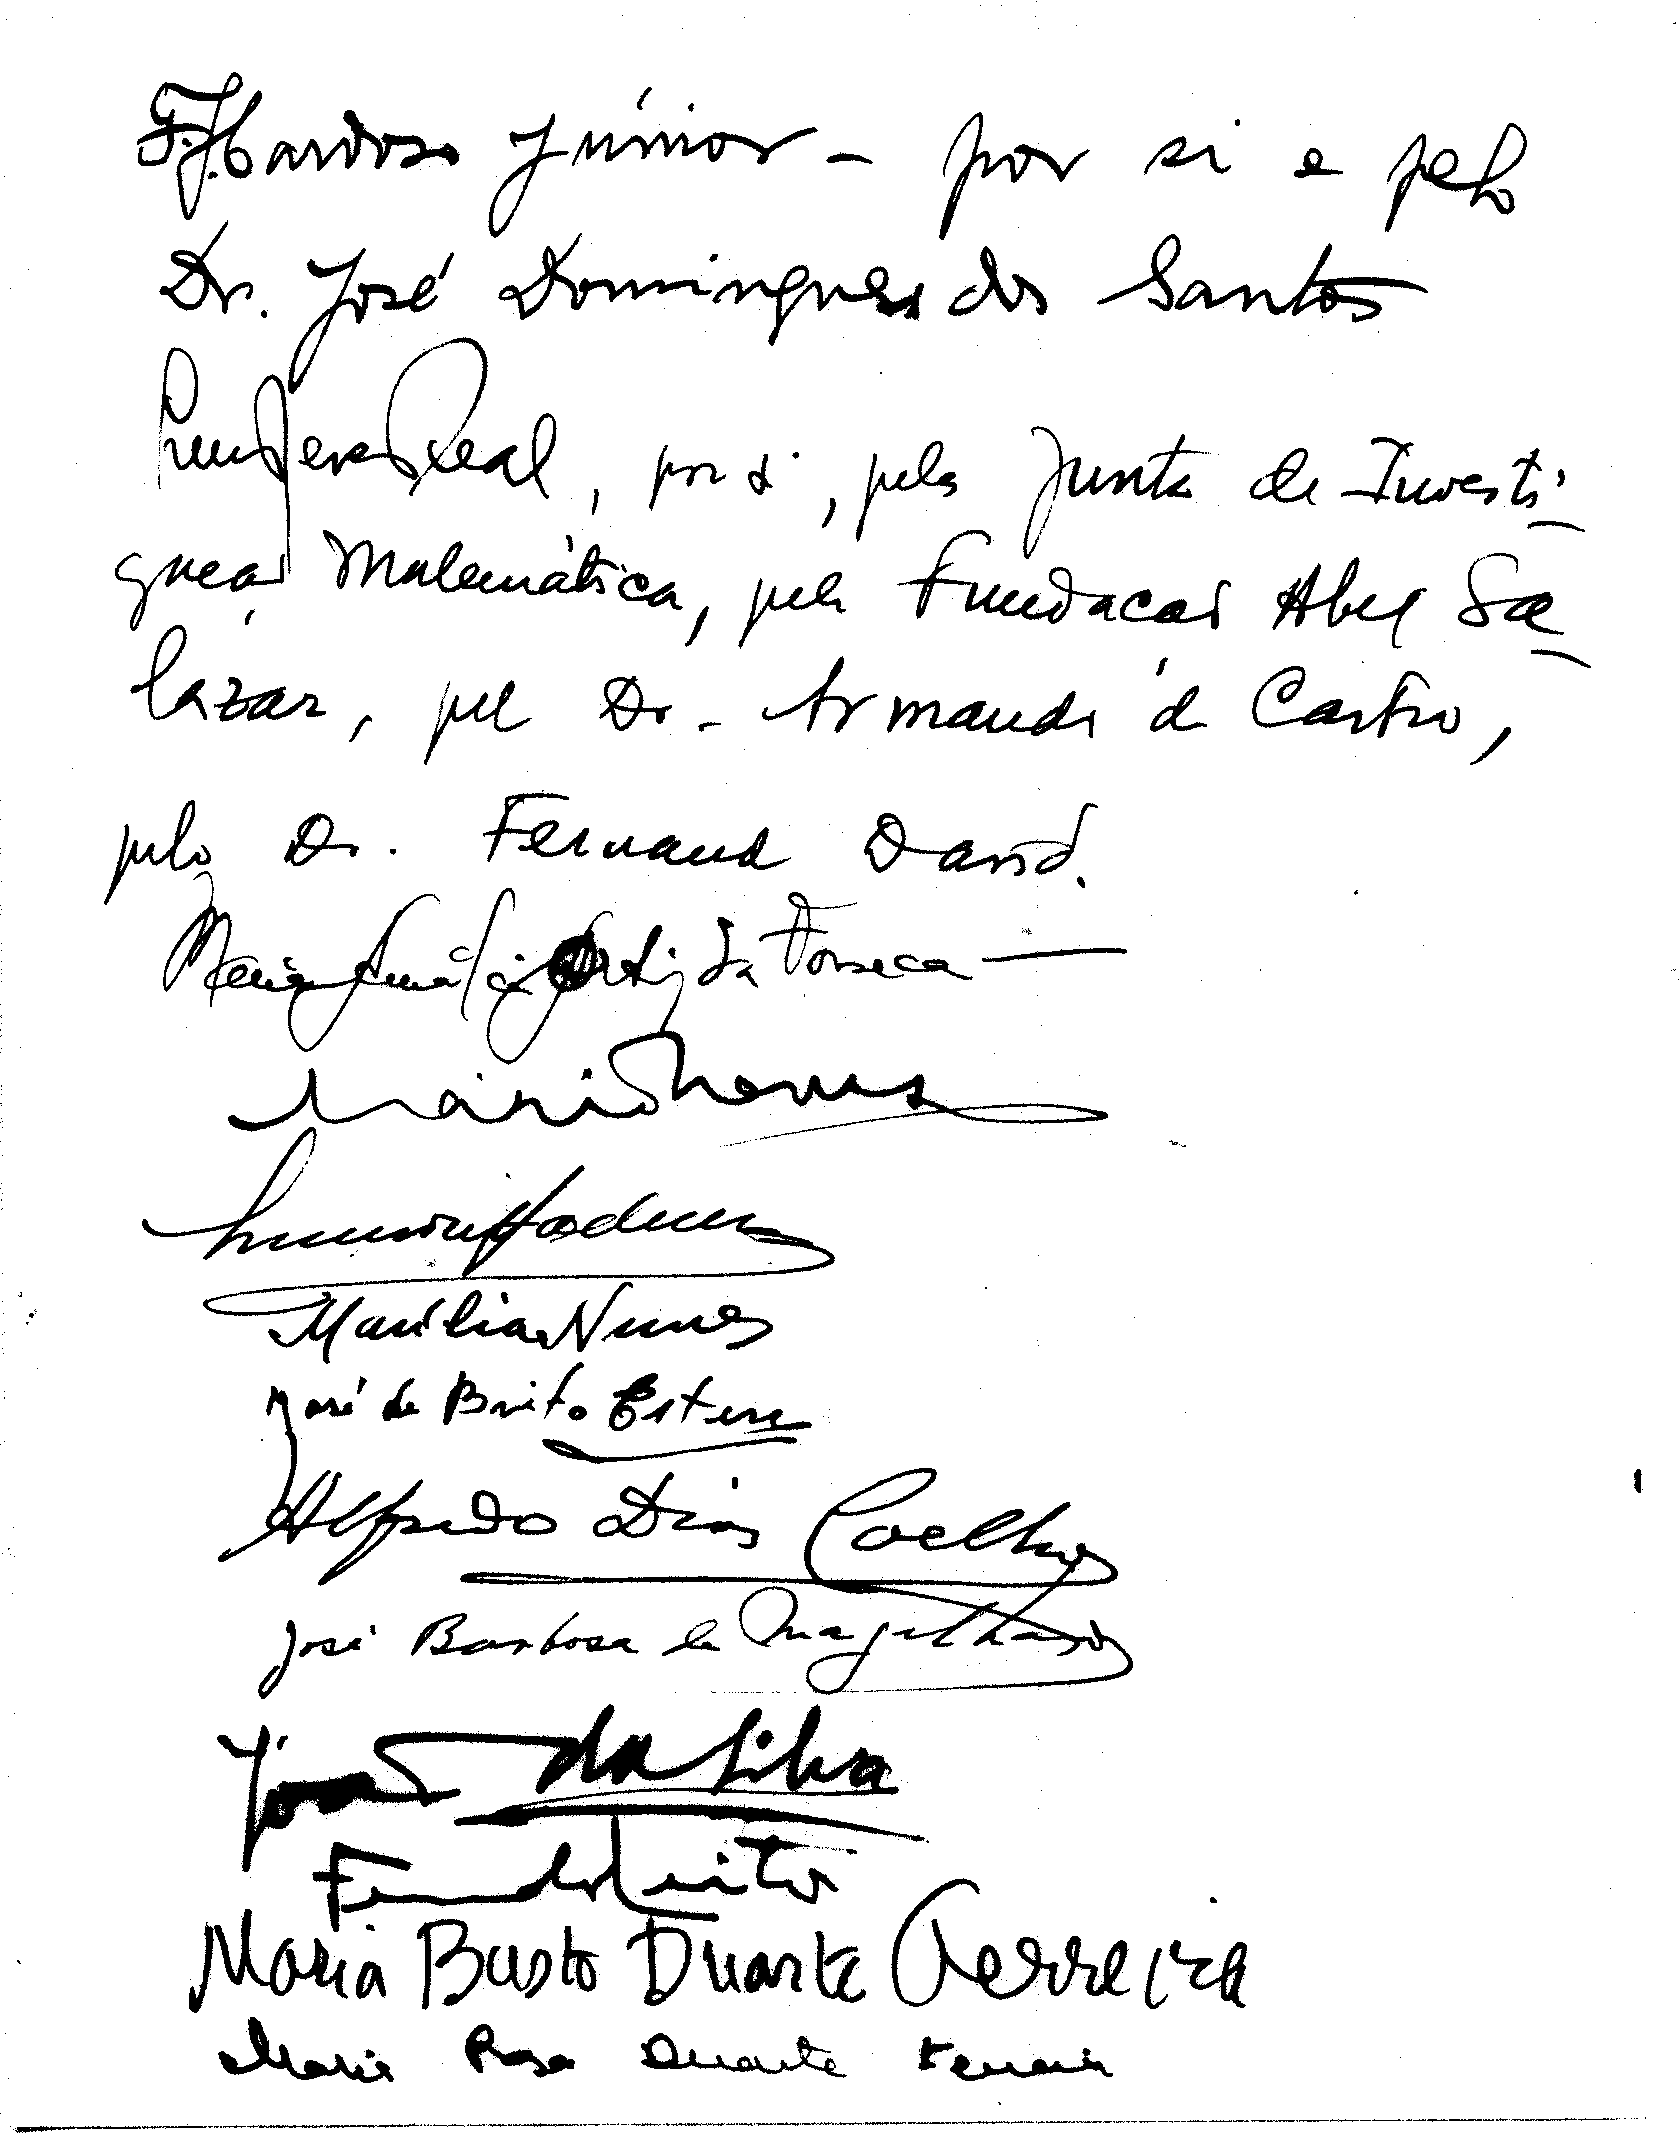 F. J. Cardoso Júnior – por si e pelo
Dr. José Domingues dos Santos
Luiz Neves Real, por si, pela Junta de Investi-
gação Matemática, pela Fundação Abel Sa-
lazar, pelo Dr. Armando de Castro,
pelo Dr. Fernando David.
Maria Amália Ortiz da Fonseca —
Mário Neves
Marília Nunes
José de Brito Esteves
Alfredo Dias Coelho
José Barbosa de Magalhães
da Silva
Fernando Leitão
Maria Busto Duarte Ferreira
Maria Rosa Duarte Ferreira